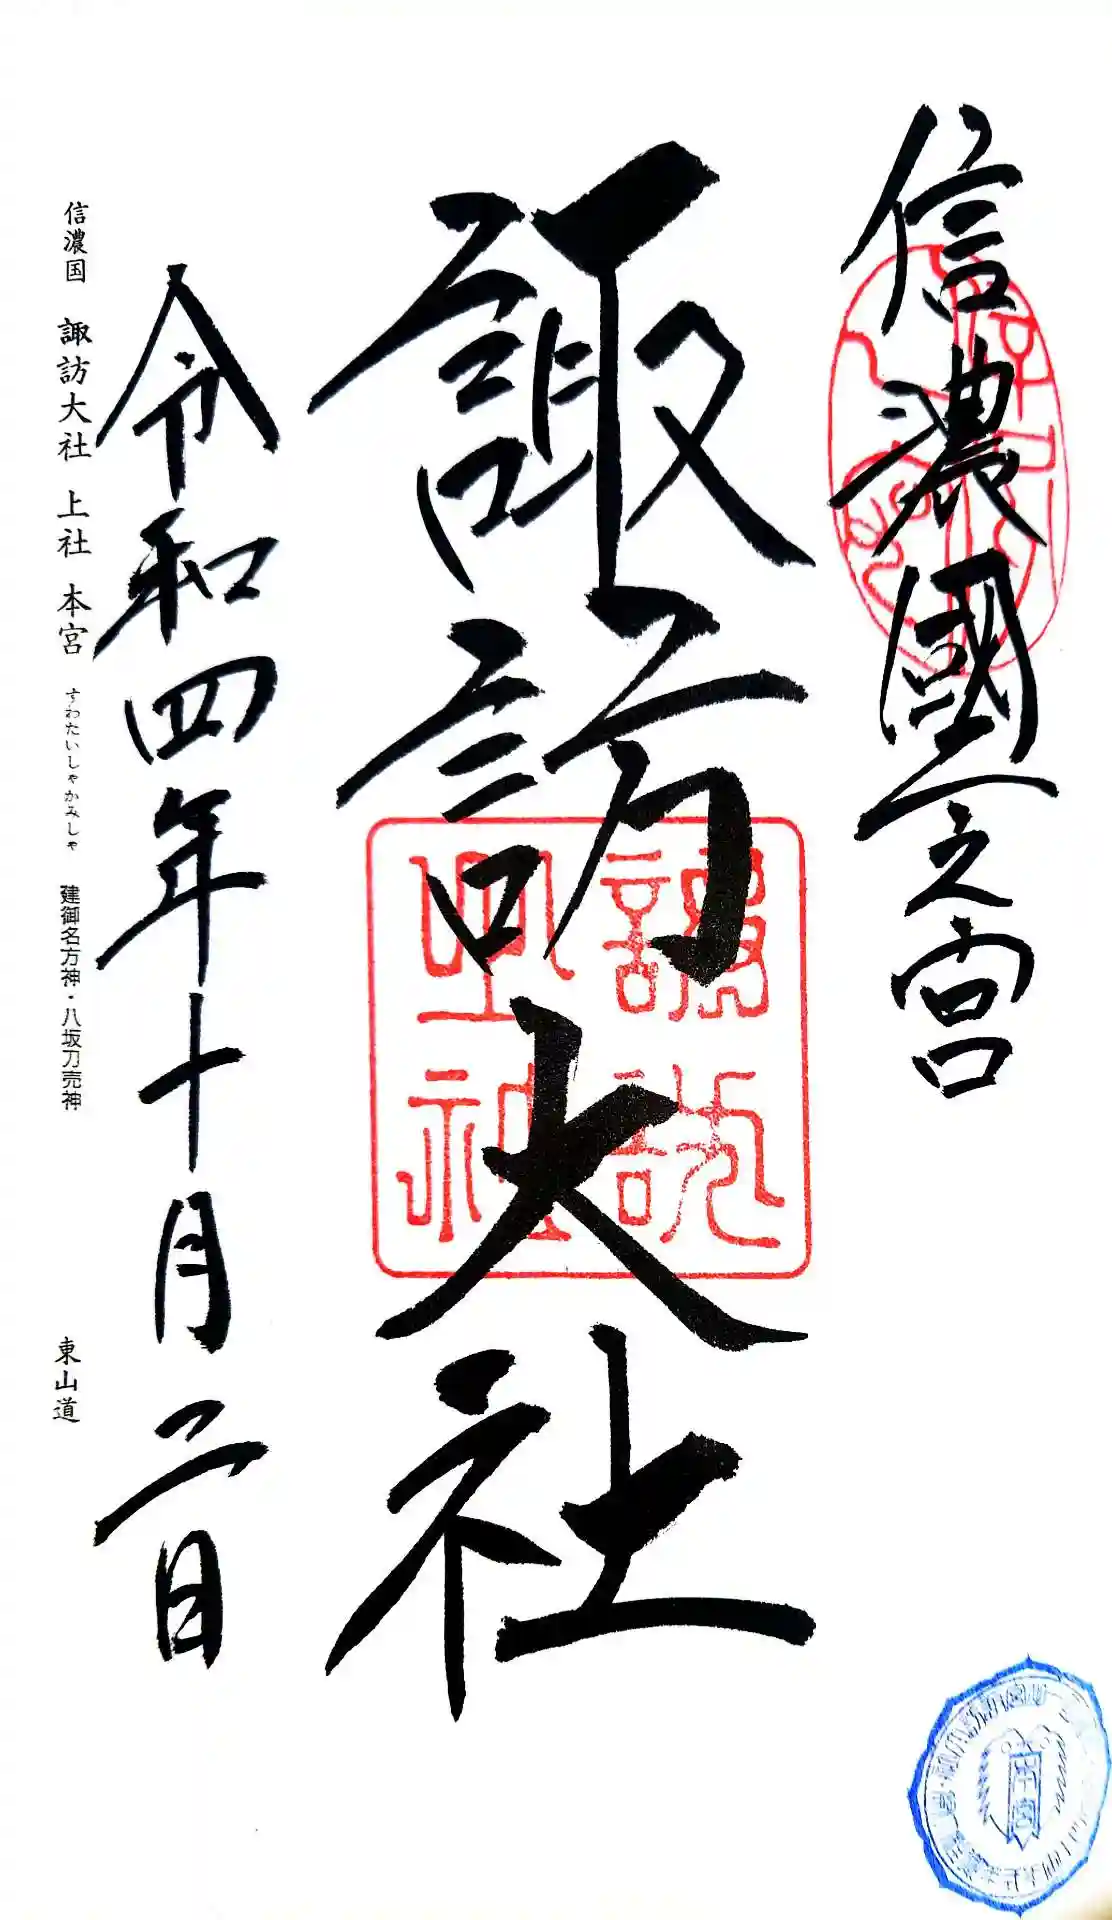 信濃國一之宮
諏訪大社
令和四年十月二日
信濃国 諏訪大社 上社 本宮 すわたいしゃかみしゃ 建御名方神・八坂刀売神 東山道
本宮